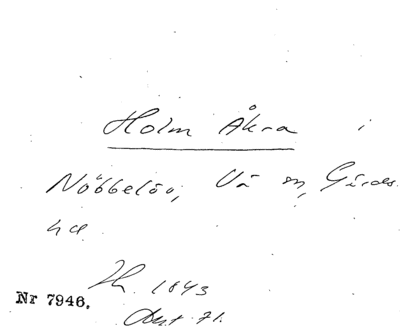 Holm Åkra i
Nöbbelöv, Vä sn, Gärds
hd
1843
Nr 7946.
71.